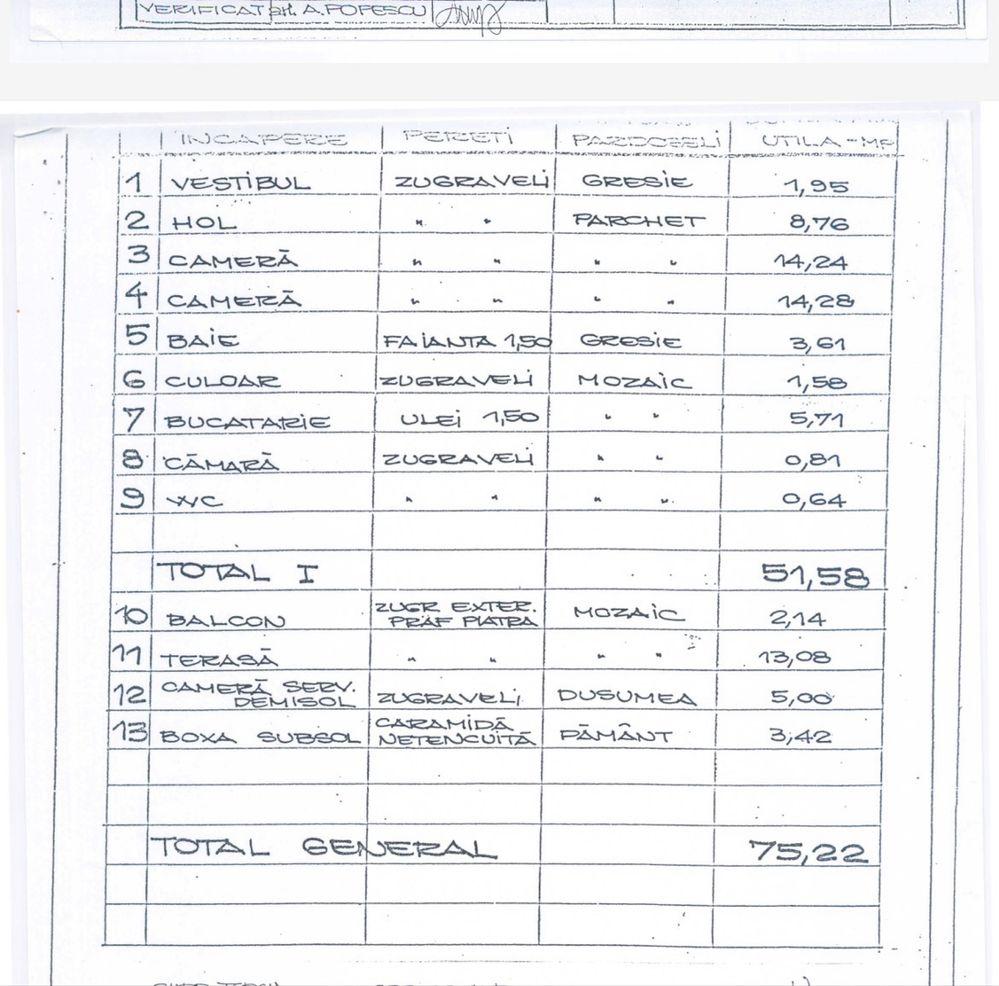 VERIFICAT arh. A. POPESCU
INCAPERE PERETI PARDOSELI UTILA-MP
1 VESTIBUL ZUGRAVELI GRESIE 1,95
2 HOL " " PARCHET 8,76
3 CAMERĂ " " " " 14,24
4 CAMERĂ " " " " 14,28
5 BAIE FAIANTA 1,50 GRESIE 3,61
6 CULOAR ZUGRAVELI MOZAIC 1,58
7 BUCATARIE ULEI 1,50 " " 5,71
8 CĂMARĂ ZUGRAVELI " " 0,81
9 WC " " " " 0,64
TOTAL I 51,58
10 BALCON ZUGR EXTER. PRAF PIATRA MOZAIC 2,14
11 TERASĂ " " " " 13,08
12 CAMERĂ SERV. DEMISOL ZUGRAVELI DUSUMEA 5,00
13 BOXA SUBSOL CARAMIDĂ NETENCUITĂ PĂMÂNT 3,42
TOTAL GENERAL 75,22